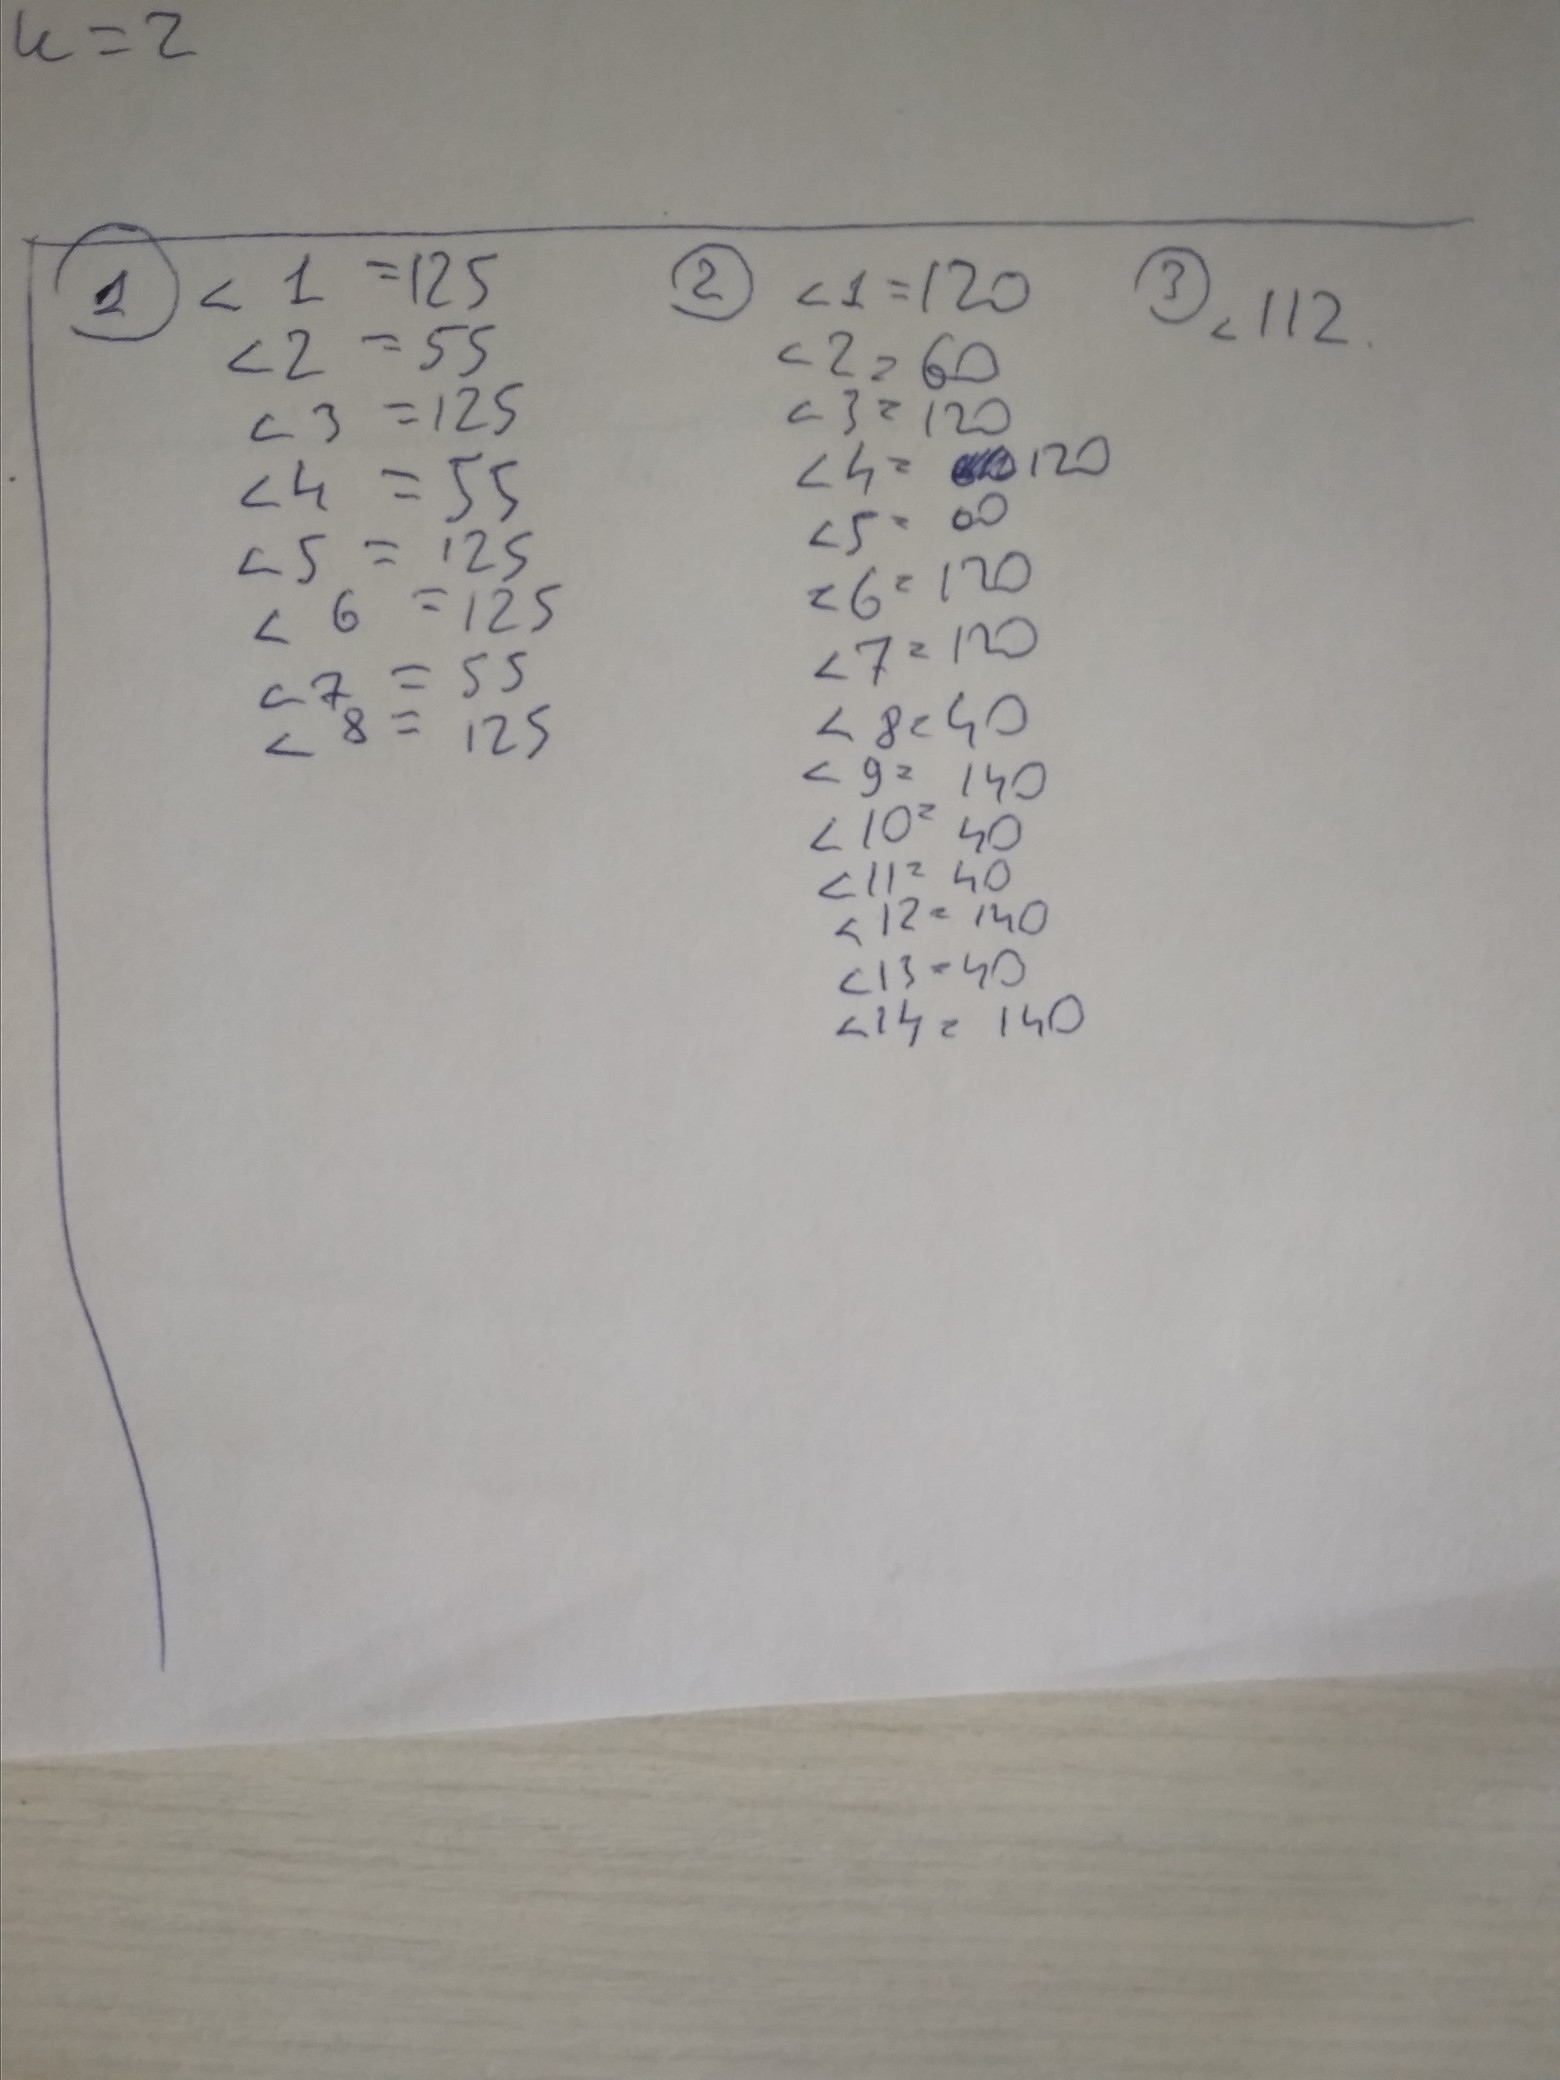 k=2
① <1 =125
<2 =55
<3 =125
<4 =55
<5 = 125
<6 =125
<7 = 55
<8 = 125
② <1=120
<2=60
<3=120
<4= 120
<5= 60
<6=120
<7=120
<8=40
<9= 140
<10= 40
<11= 40
<12=140
<13=40
<14= 140
③ <112.